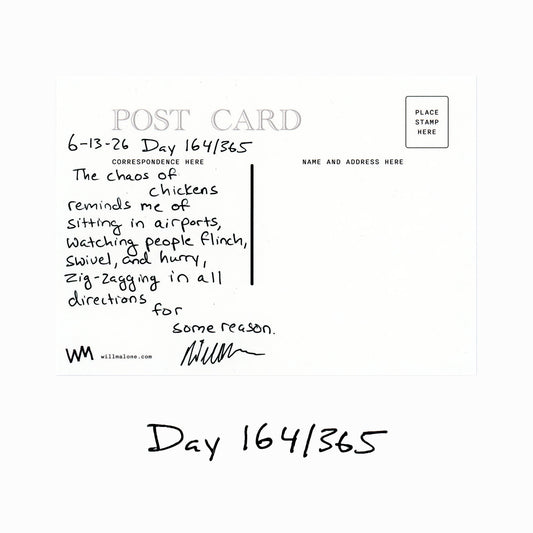 POST CARD
PLACE
STAMP
HERE
6-13-26 Day 164/365
CORRESPONDENCE HERE
NAME AND ADDRESS HERE
The chaos of
chickens
reminds me of
sitting in airports,
watching people flinch,
swivel, and hurry,
zig-zagging in all
directions
for
some reason.
WM willmalone.com
Day 164/365